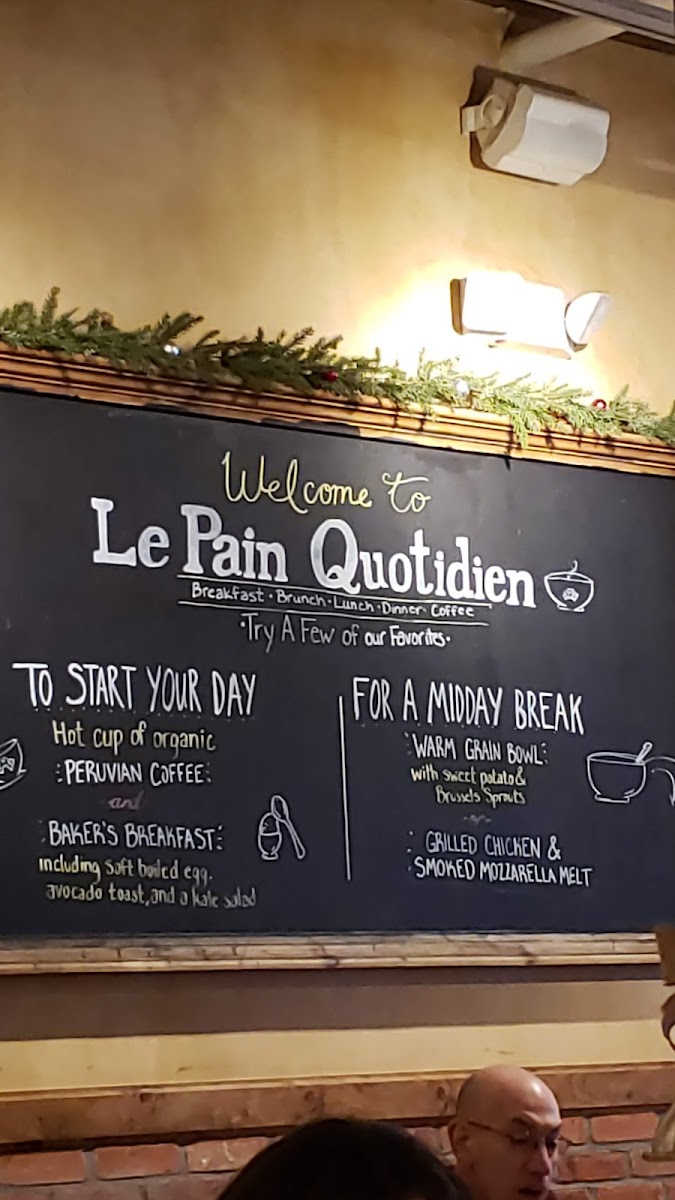 Welcome to
Le Pain Quotidien
Breakfast · Brunch · Lunch · Dinner · Coffee
·Try A Few of our Favorites·
TO START YOUR DAY
Hot cup of organic
:PERUVIAN COFFEE:
and
:BAKER'S BREAKFAST:
including soft boiled egg,
avocado toast, and a kale salad
FOR A MIDDAY BREAK
:WARM GRAIN BOWL:
with sweet potato &
Brussels Sprouts
-or-
: GRILLED CHICKEN &
SMOKED MOZZARELLA MELT